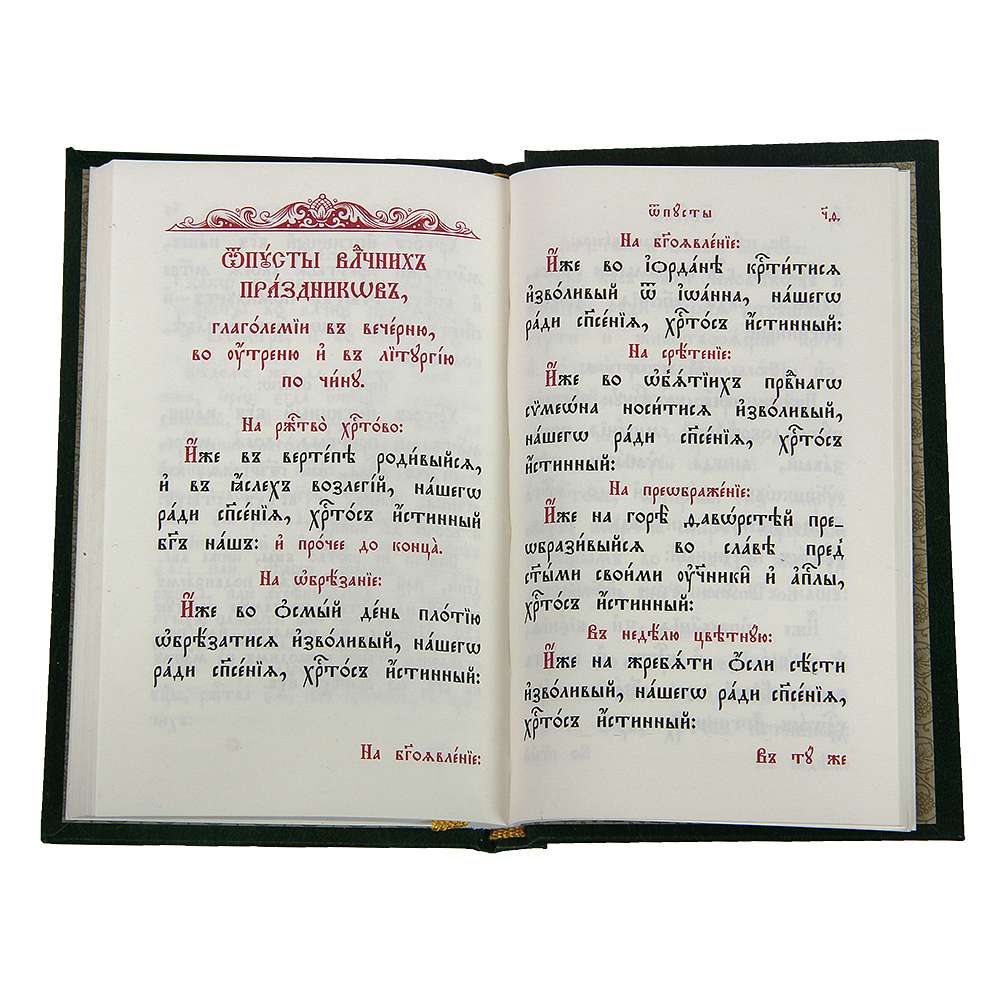 Ѿпꙋ́сты влⷣчнихъ
пра́здникѡвъ,
глаго́лемїи въ вече́рню,
во ᲂу҆́треню и҆ въ лїтꙋргі́ю
по чи́нꙋ.
На ржⷭ҇тво̀ хрⷭ҇то́во:
И҆́же въ верте́пѣ роди́выйсѧ,
и҆ въ ꙗ҆́слехъ возлегі́й, на́шегѡ
ра́ди спⷭ҇е́нїѧ, хрⷭ҇то́съ и҆́стинный
бг҃ъ на́шъ: и҆ про́чее до конца̀.
На ѡ҆брѣ́занїе:
И҆́же во ѻ҆смы́й де́нь пло́тїю
ѡ҆брѣ́затисѧ и҆зво́ливый, на́шегѡ
ра́ди спⷭ҇е́нїѧ, хрⷭ҇то́съ и҆́стинный:
На бг҃оѧвле́нїе:
ѿпꙋсты
ч҃д.
На бг҃оѧвле́нїе:
И҆́же во і҆ѻрда́нѣ крⷭ҇ти́тисѧ
и҆зво́ливый ѿ і҆ѡа́нна, на́шегѡ
ра́ди спⷭ҇е́нїѧ, хрⷭ҇то́съ и҆́стинный:
На срѣ́тенїе:
И҆́же во ѡ҆б̾ѧ́тїихъ првⷣнагѡ
сѷмеѡ́на носи́тисѧ и҆зво́ливый,
на́шегѡ ра́ди спⷭ҇е́нїѧ, хрⷭ҇то́съ
и҆́стинный:
На преѡбраже́нїе:
И҆́же на горѣ̀ ѳавѡ́рстѣй пре_
ѡбрази́выйсѧ во сла́вѣ пред̾
ст҃ы́ми свои́ми ᲂу҆чн҃ики̑ и҆ а҆пⷭ҇лы,
хрⷭ҇то́съ и҆́стинный:
Въ недѣ́лю цвѣ́тнꙋю:
И҆́же на жребѧ́ти ѻ҆́сли сѣ́сти
и҆зво́ливый, на́шегѡ ра́ди спⷭ҇е́нїѧ,
хрⷭ҇то́съ и҆́стинный:
Въ тꙋ же